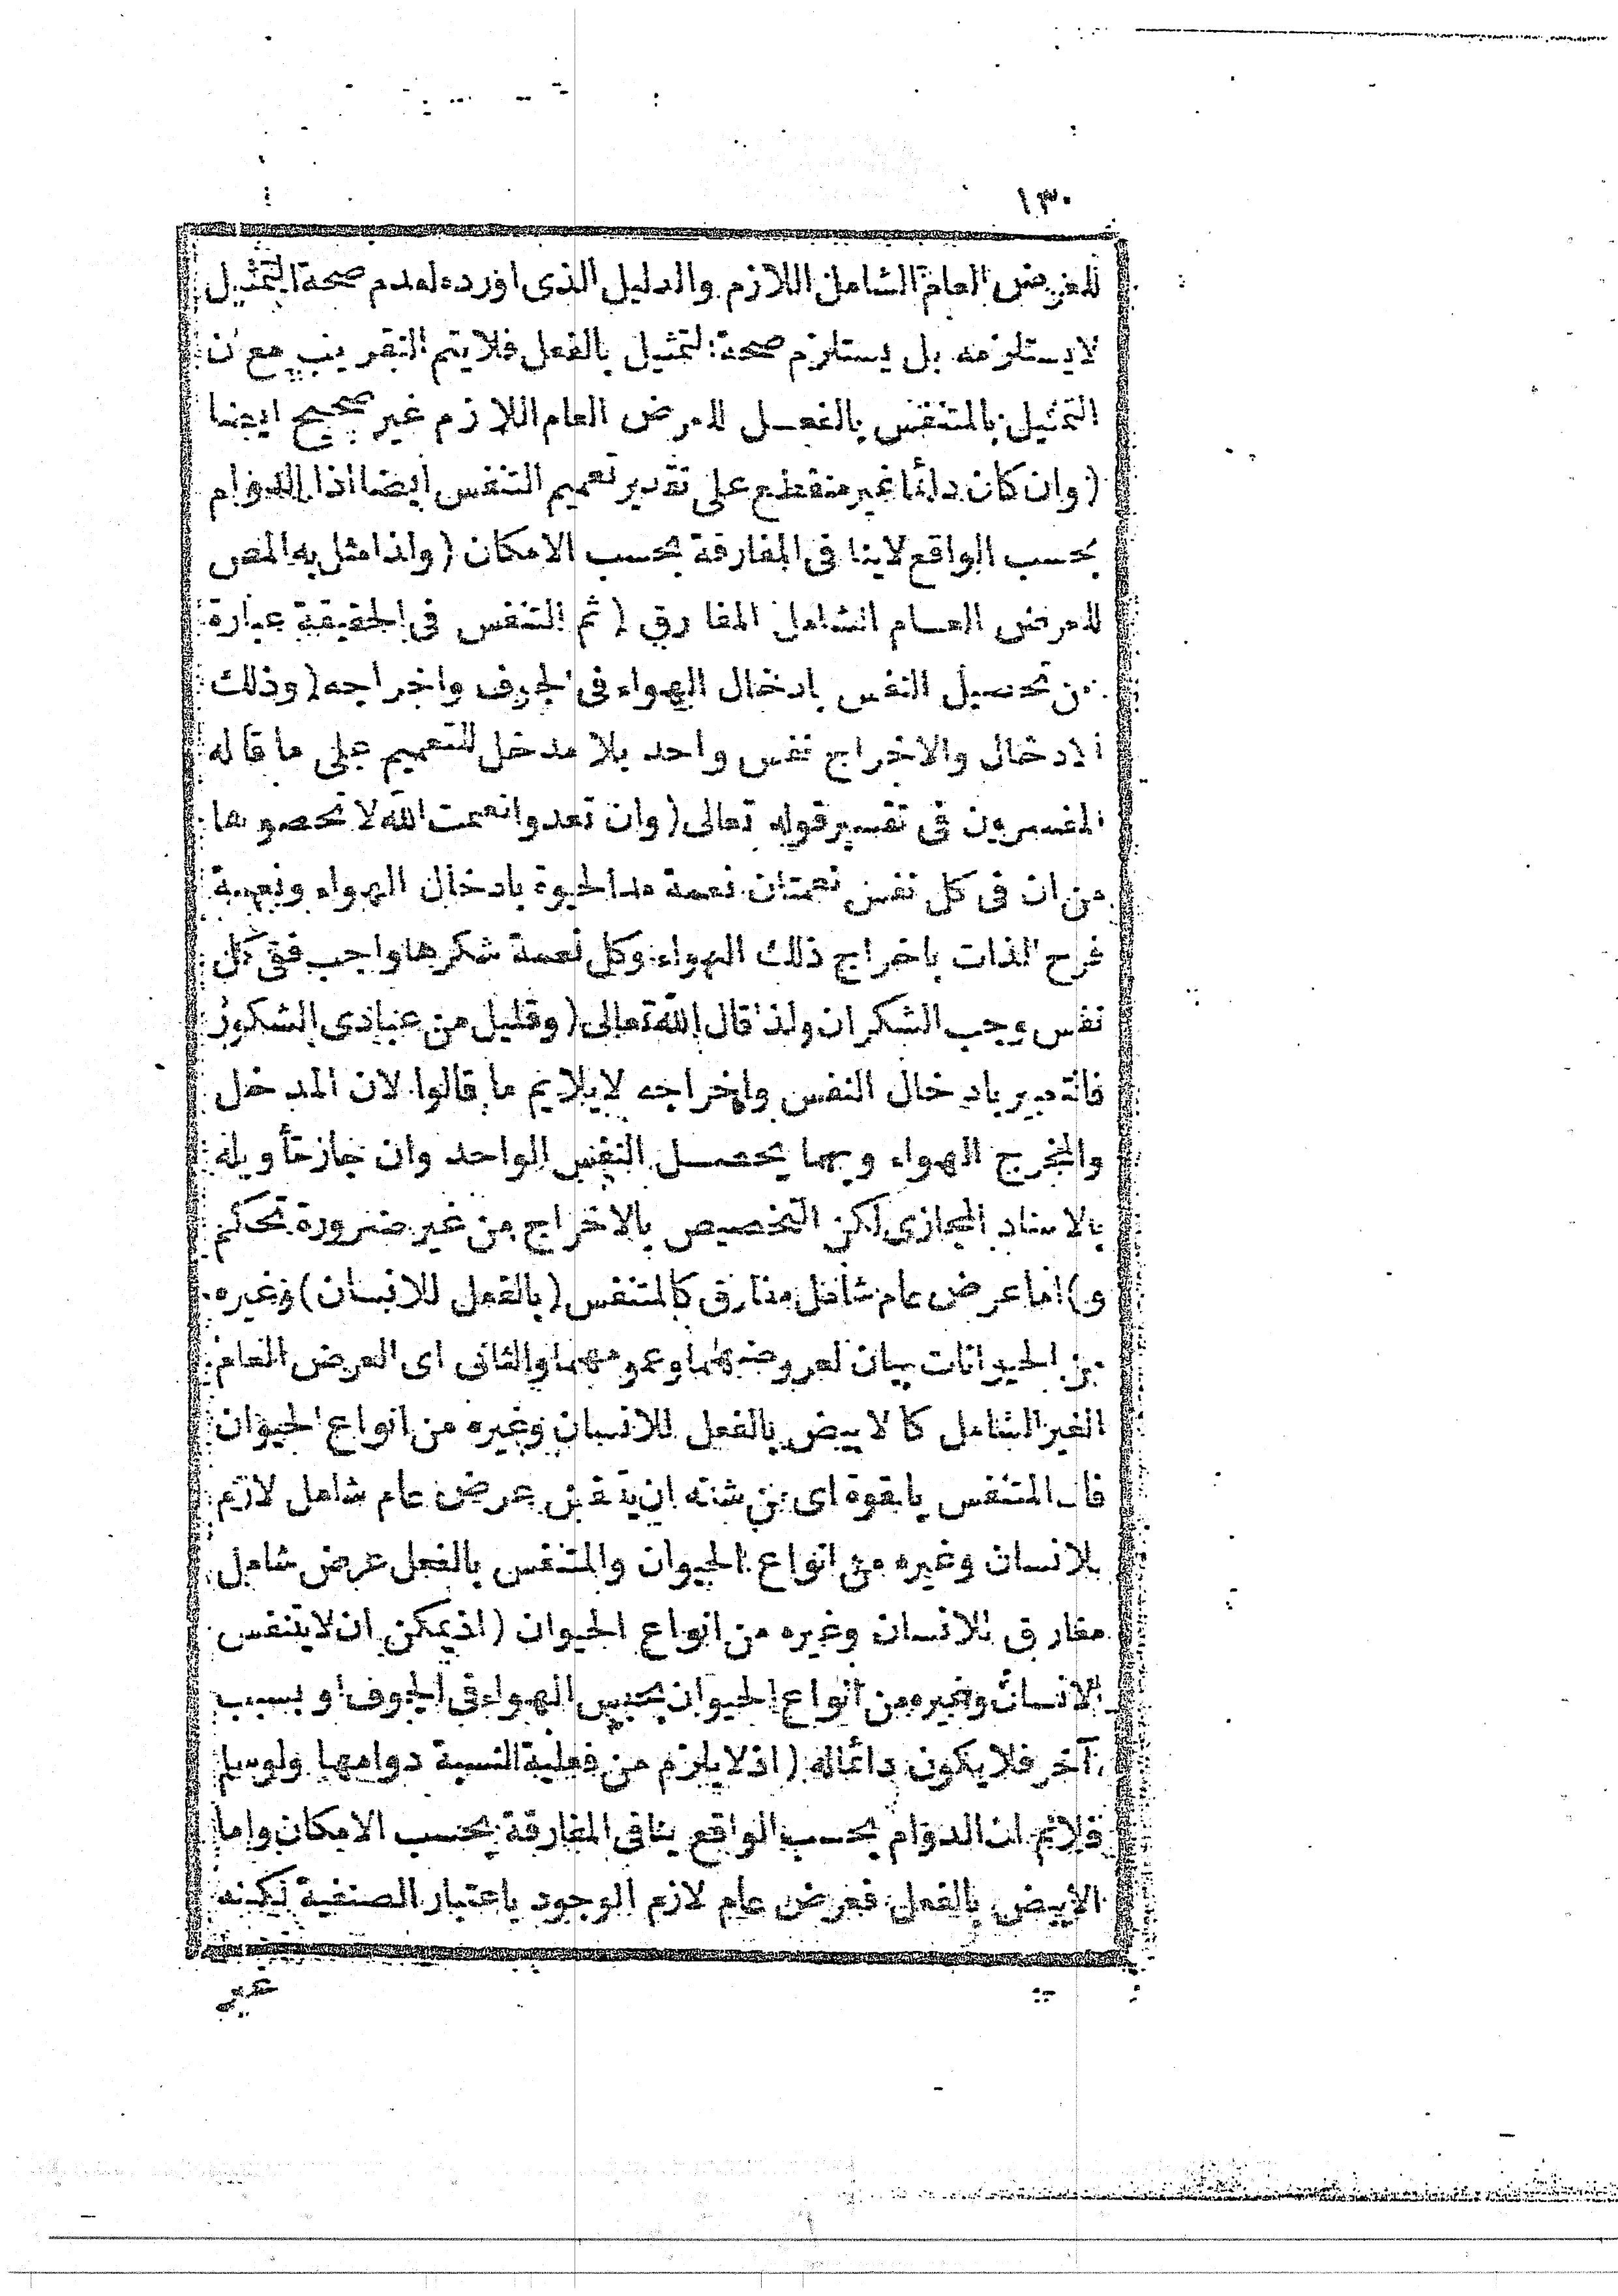 ١٣٠
للعرض العام الشامل اللازم والدليل الذى اورده لعدم صحة التمثيل
لا يستلزمه بل يستلزم صحة التمثيل بالفعل فلا يتم التقريب مع ان
التمثيل بالمتنفس بالفعل للعرض العام اللازم غير صحيح ايضا
(وان كان دائما غير منقطع على تقدير تعميم التنفس ايضا اذا الدوام
بحسب الواقع لا ينا فى المفارقة بحسب الامكان (ولذا مثل به المص
للعرض العام الشامل المفارق (ثم التنفس فى الحقيقة عبارة
عن تحصيل النفس بادخال الهواء فى الجوف واخراجه (وذلك
الادخال والاخراج نفس واحد بلا مدخل للتعميم على ما قاله
المفسرون فى تفسير قوله تعالى (وان تعدوا نعمت الله لا تحصوها
من ان فى كل نفس نعمتان نعمة مد الحيوة بادخال الهواء ونعمة
فرح الذات باخراج ذلك الهواء وكل نعمة شكرها واجب ففى كل
نفس وجب الشكران ولذا قال الله تعالى (وقليل من عبادى الشكور
فالتعبير بادخال النفس واخراجه لا يلايم ما قالوا لان المدخل
والمخرج الهواء وبهما يحصل النفس الواحد وان جاز تأويله
بالاسناد المجازى لكن التخصيص بالاخراج من غير ضرورة تحكم
و) اما عرض عام شامل مفارق كالمتنفس (بالفعل للانسان) وغيره
من الحيوانات بيان لعروضهما وعمومهما والثانى اى العرض العام
الغير الشامل كالابيض بالفعل للانسان وغيره من انواع الحيوان
فال المتنفس بالقوة اى من شئنه ان يتنفس عرض عام شامل لازم
للانسان وغيره من انواع الحيوان والمتنفس بالفعل عرض شامل
مفارق للانسان وغيره من انواع الحيوان (اذ يمكن ان لا يتنفس
الانسان وغيره من انواع الحيوان بحبس الهواء فى الجوف او بسبب
آخر فلا يكون دائما له (اذ لا يلزم من فعلية النسبة دوامها ولو سلم
فلا نم ان الدوام بحسب الواقع ينافى المفارقة بحسب الامكان واما
الابيض بالفعل فعرض عام لازم الوجود باعتبار الصنفية لكنه
غير